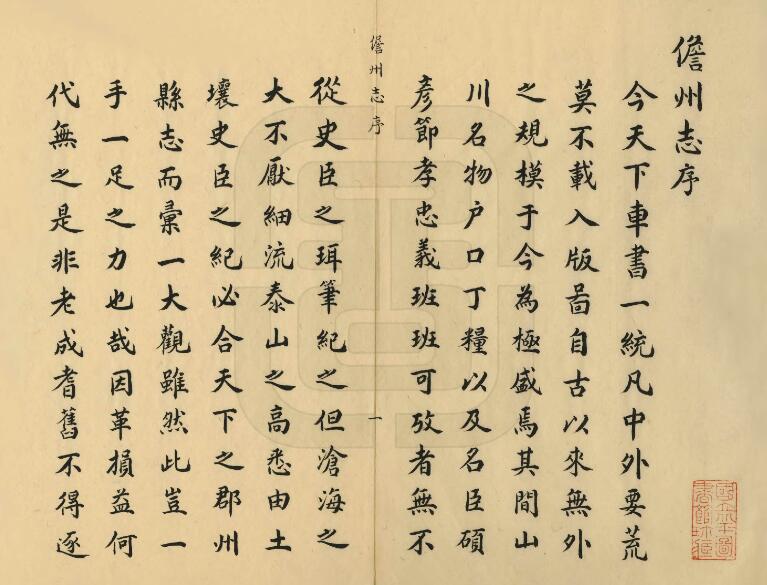 儋州志序
今天下車書一統凡中外要荒
莫不載入版啚自古以來無外
之規模于今為極盛焉其間山
川名物户口丁糧以及名臣碩
彥節孝忠義班班可攷者無不
儋州志序
一
從史臣之珥筆紀之但滄海之
大不厭細流泰山之高悉由土
壤史臣之紀必合天下之郡州
縣志而彙一大觀雖然此豈一
手一足之力也哉因革損益何
代無之是非老成耆舊不得逐